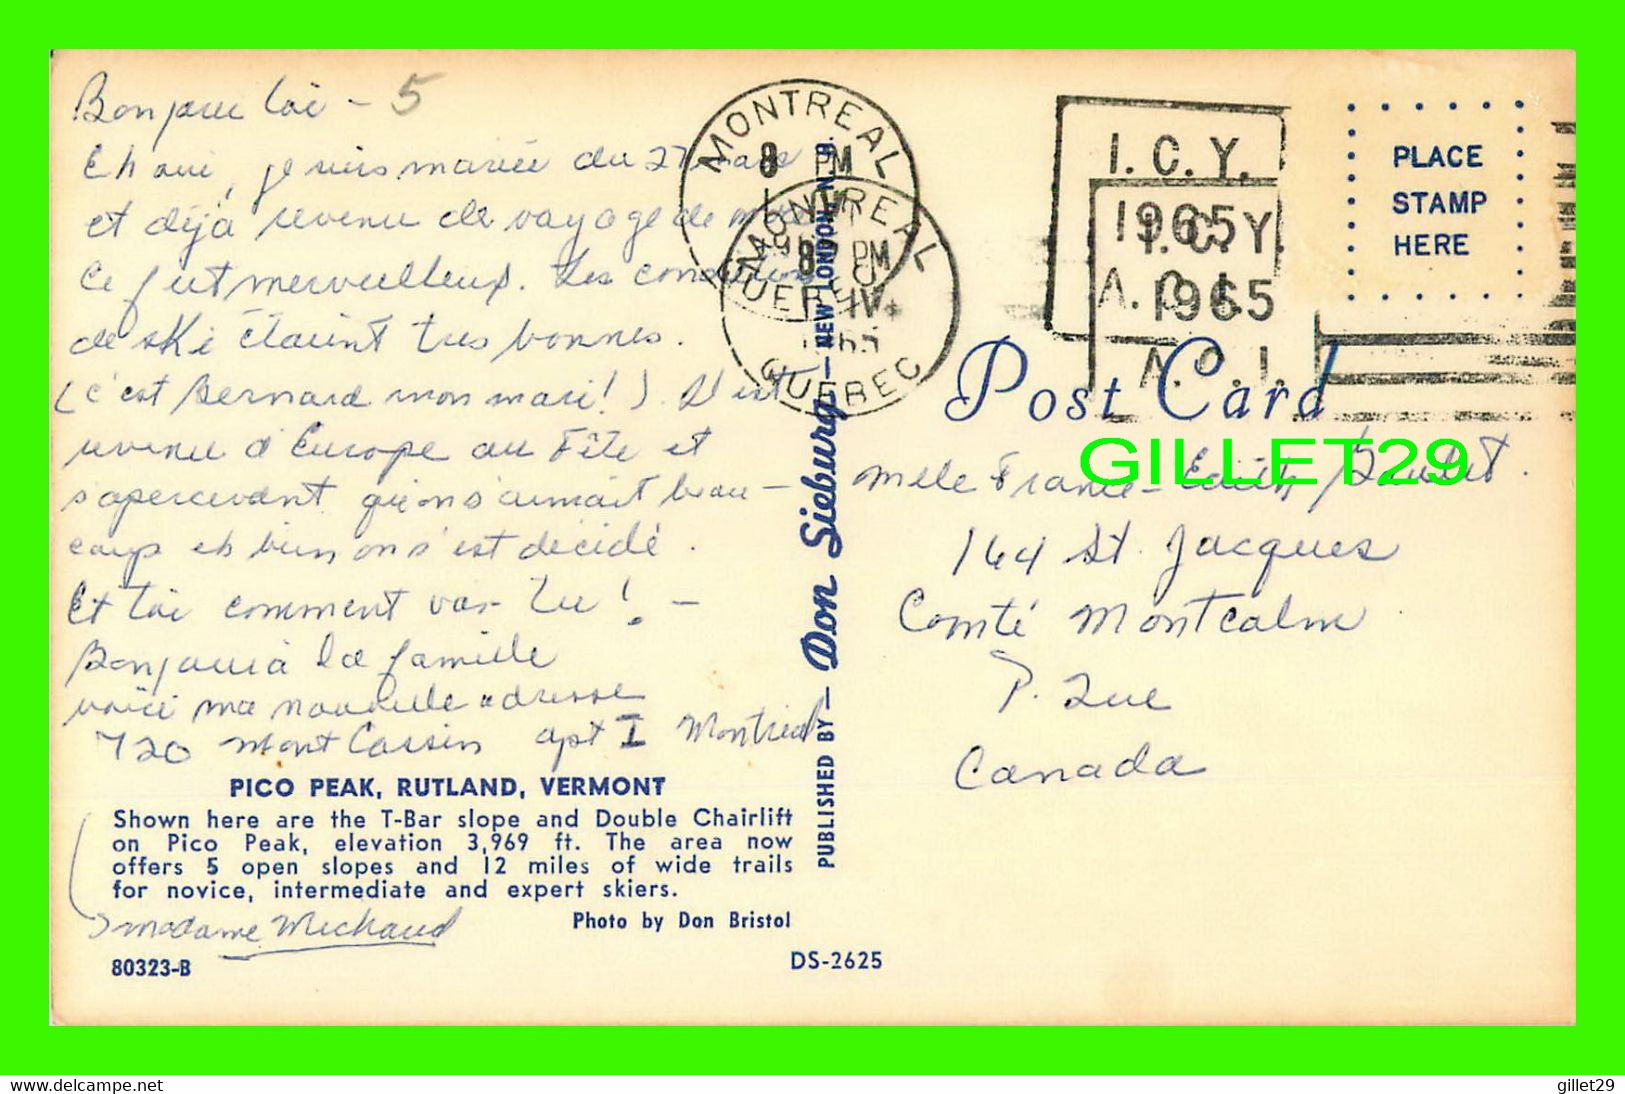 Bonjour toi - 5
Eh oui, je suis mariée du 27 mars
et déjà revenue de voyage de
Ce fut merveilleux. Les conditions
de ski étaient très bonnes.
(c'est Bernard mon mari!). Il est
revenu d'Europe au Fête et
s'apercevant qu'on s'aimait beau-
coup eh bien on s'est décidé.
Et toi comment vas-tu! -
Bonjour à la famille
voici ma nouvelle adresse
720 Mont Cassin apt I Montreal
PICO PEAK, RUTLAND, VERMONT
Shown here are the T-Bar slope and Double Chairlift
on Pico Peak, elevation 3,969 ft. The area now
offers 5 open slopes and 12 miles of wide trails
for novice, intermediate and expert skiers.
Madame Michaud
Photo by Don Bristol
80323-B
DS-2625
PUBLISHED BY — Don Sieburg — NEW LONDON, N.H.
MONTREAL
8 PM
QUEBEC
MONTREAL
8 PM
IV
QUEBEC
I.C.Y.
1965
A.C.I.
I.C.Y.
1965
A.C.I.
PLACE
STAMP
HERE
Post Card
GILLET29
Melle France-Edith
164 St. Jacques
Comté Montcalm
P. Que
Canada
www.delcampe.net
gillet29